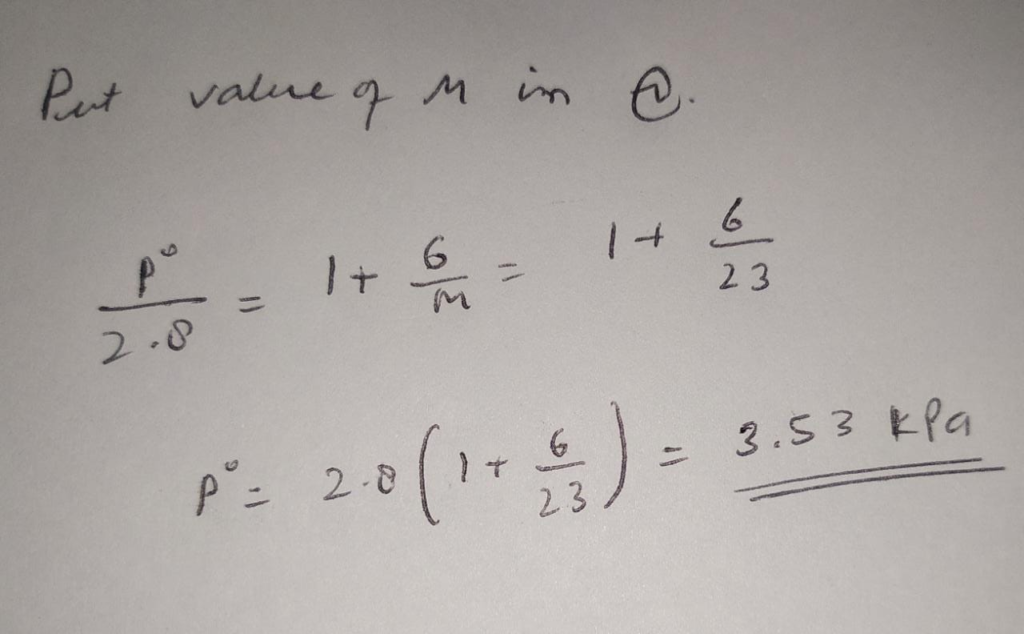 Put value of M in ⓐ.
p°/2.8 = 1 + 6/M = 1 + 6/23
p° = 2.8 (1 + 6/23) = 3.53 kPa